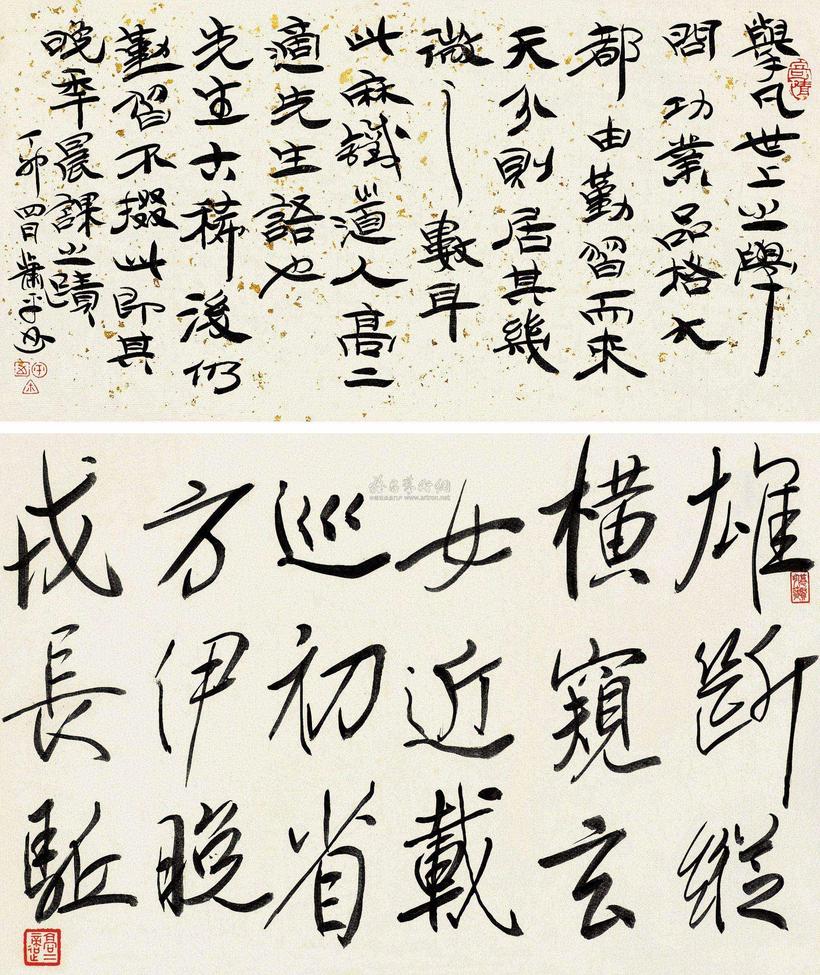 舉凡世上之學
問功業品格大
都由勤習而來
天分則居其幾
微之數耳
此麻鐵道人高二
適先生語也
先生古稀後仍
勤習不掇此即其
晚秊晨課之蹟
丁卯四月蕭平
雄斷縱
橫窺玄
女近載
巡初省
方伊晚
戍長駈
www.artron.net